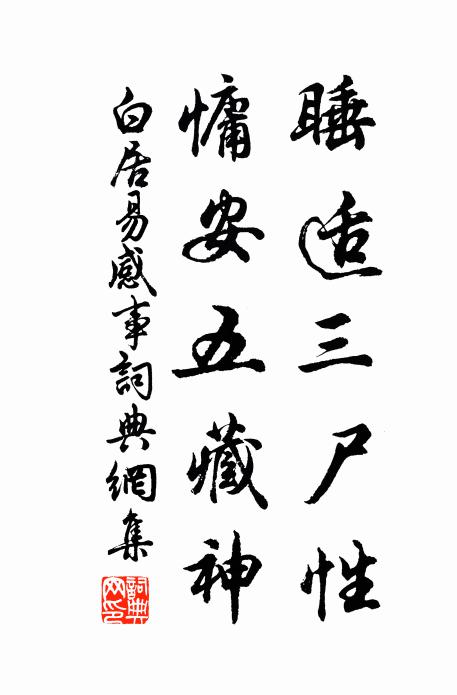 睡适三尸性
慵安五藏神
白居易感事詞典網集
詞典网印